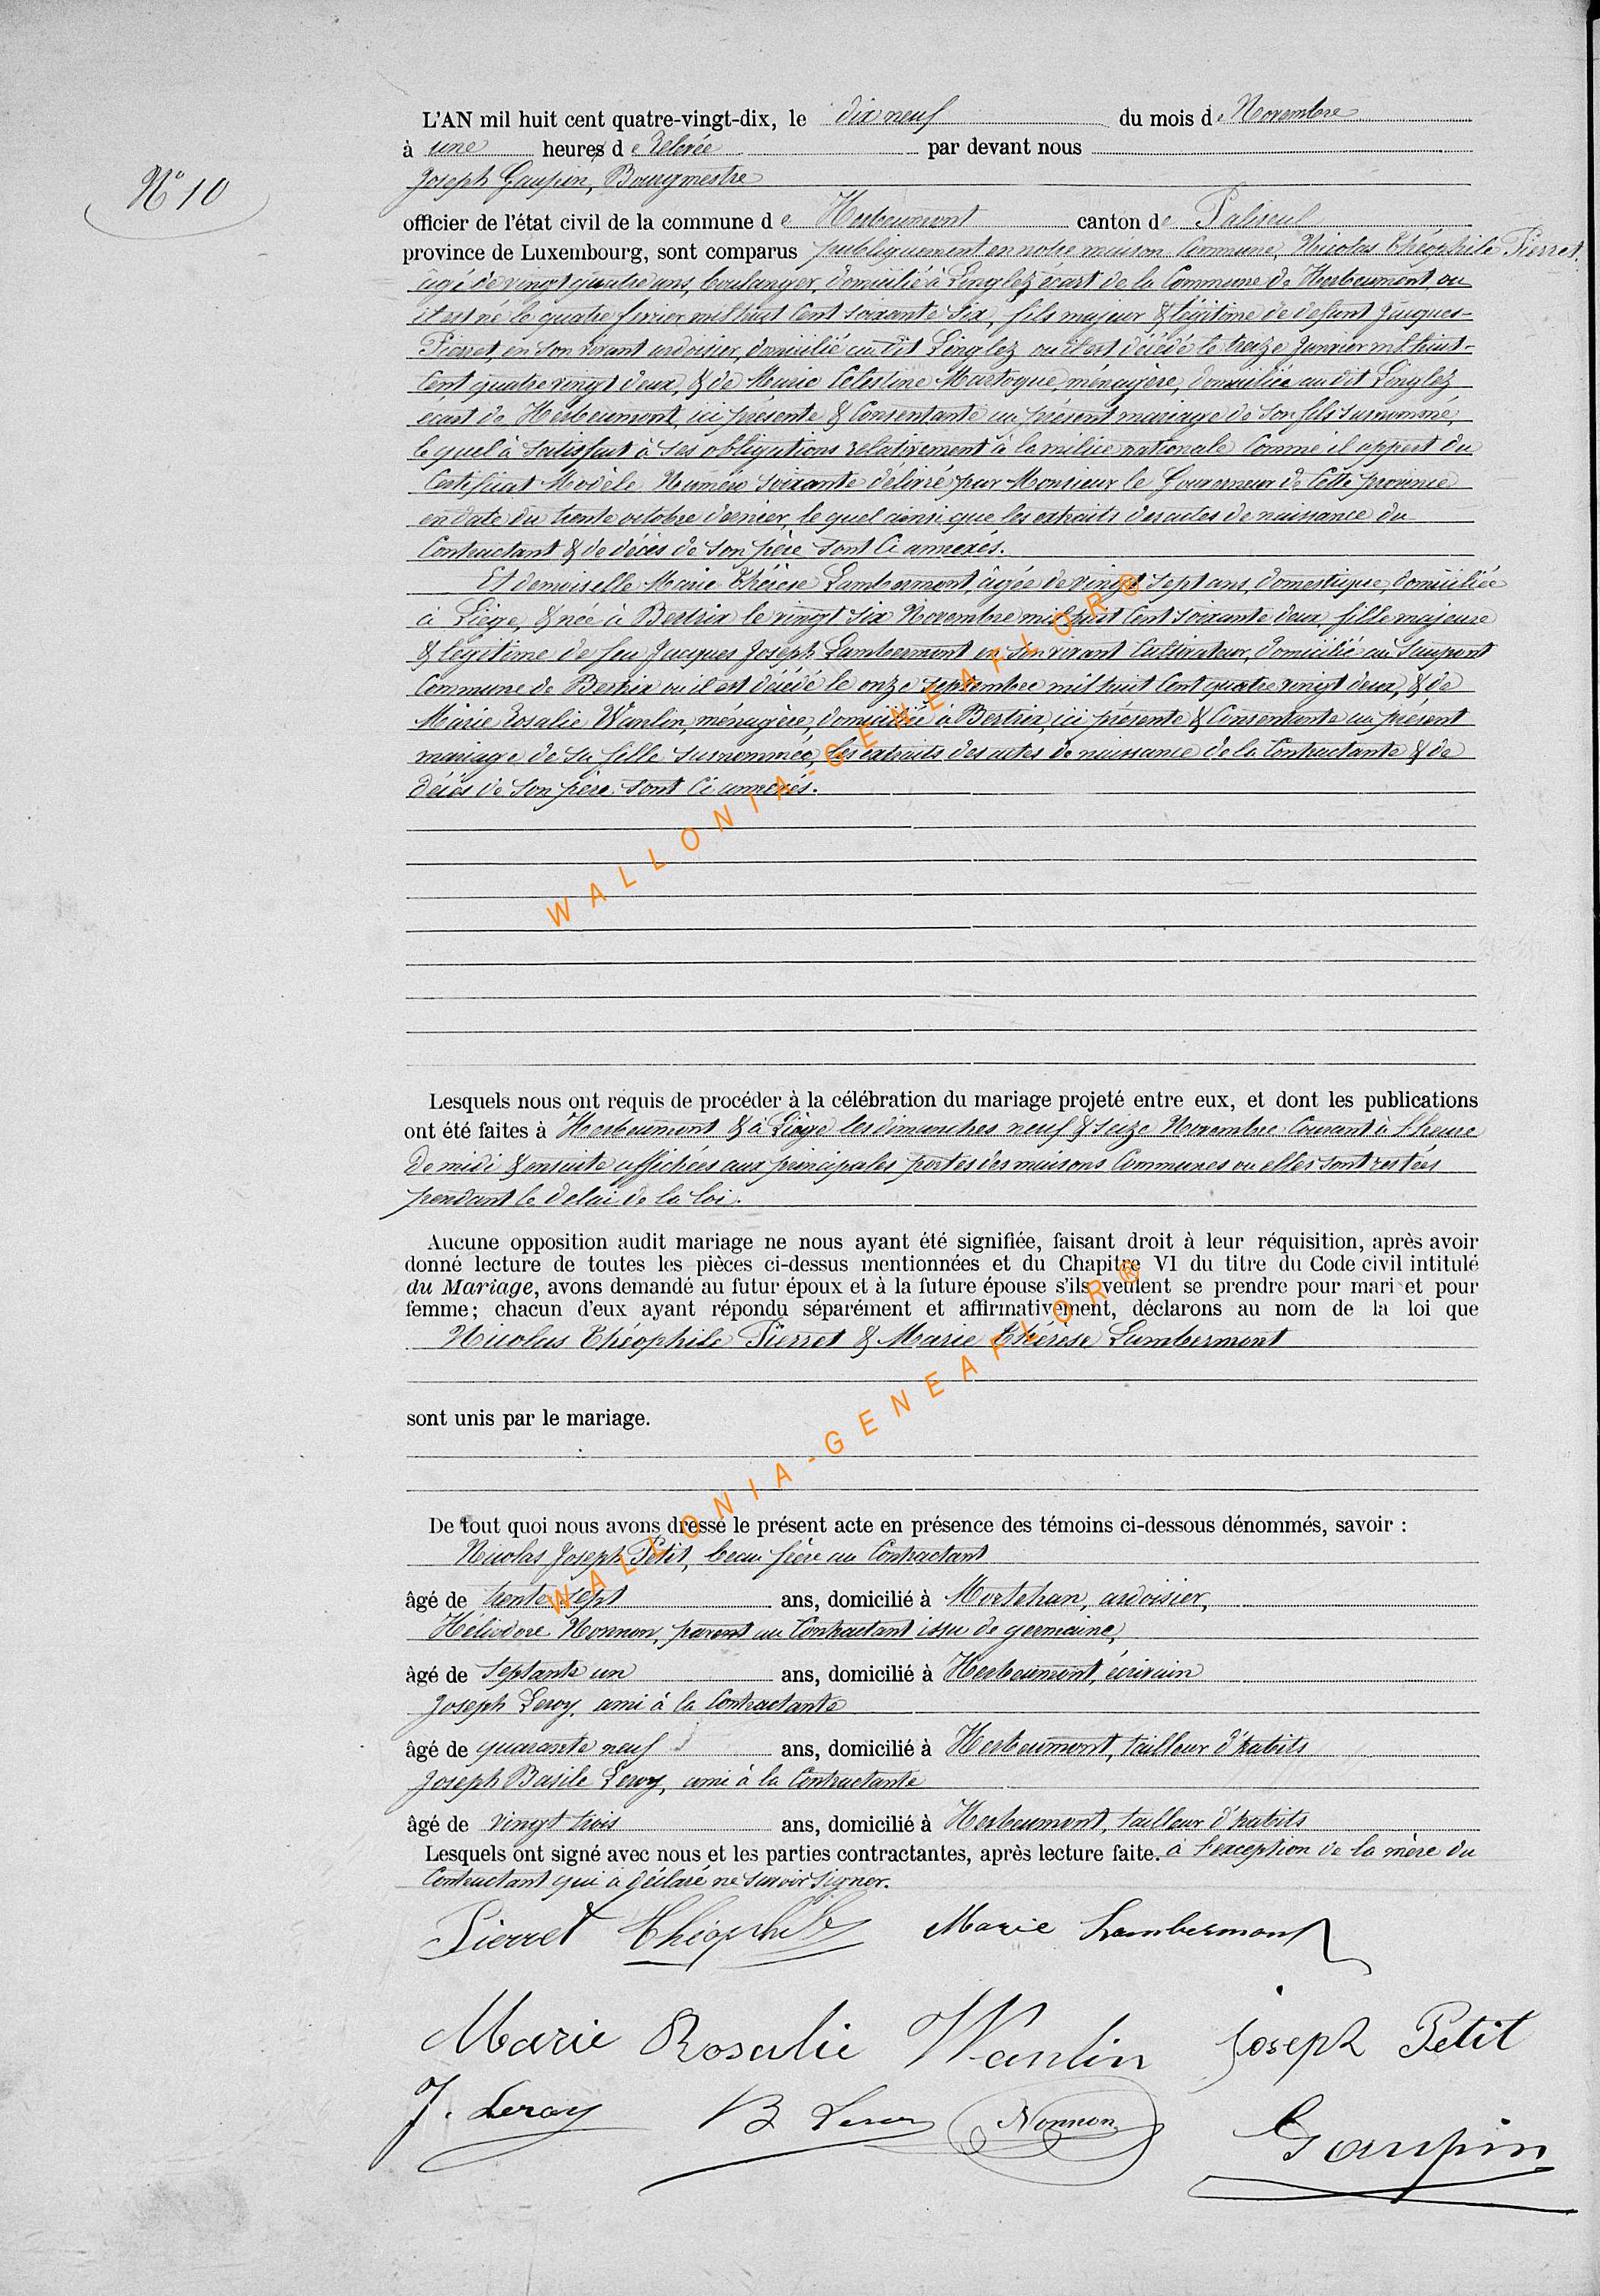 L'AN mil huit cent quatre-vingt-dix, le dix neuf du mois de Novembre
à une heures de Relevée par devant nous
N° 10
Joseph Gaupin, Bourgmestre
officier de l'état civil de la commune de Herbeumont canton de Paliseul
province de Luxembourg, sont comparus publiquement en notre maison Commune, Nicolas Théophile Pierret,
âgé de vingt quatre ans, boulanger, domicilié à Linglez écart de la Commune de Herbeumont, ou
il est né le quatre février mil huit Cent soixante Six, fils majeur & légitime de défunt Jacques
Pierret, en Son vivant ardoisier, domicilié au dit Linglez ou il est décédé le treize Janvier mil huit-
Cent quatre vingt deux, & de Marie Célestine Martogue, ménagère, domiciliée au dit Linglez
écart de Herbeumont, ici présente & Consentante au présent mariage de Son fils surnommé,
le quel à Satisfait à Ses obligations relativement à la milice nationale Comme il appert du
Certificat Modèle Numéro soixante délivré par Monsieur le Gouverneur de Cette province
en date du trente octobre dernier, le quel ainsi que les extraits des actes de naissance du
Contractant & de décès de Son père Sont Ci annexés.
Et demoiselle Marie Thérèse Lambermont, âgée de vingt Sept ans, domestique, domiciliée
à Liège, & née à Bertrix le vingt Six Novembre mil huit Cent soixante deux, fille majeure
& légitime de feu Jacques Joseph Lambermont en Son vivant Cultivateur, domicilié au Saupont
Commune de Bertrix ou il est décédé le onze Septembre mil huit Cent quatre vingt deux, & de
Marie Rosalie Wanlin, ménagère, domiciliée à Bertrix, ici présente & Consentante au présent
mariage de Sa fille Surnommée, les extraits des actes de naissance de la Contractante & de
décès de Son père Sont Ci annexés.
WALLONIA-GENEAFLOR®
Lesquels nous ont requis de procéder à la célébration du mariage projeté entre eux, et dont les publications
ont été faites à Herbeumont & à Liège les dimanches neuf & Seize Novembre Courant à l'heure
de midi & ensuite affichées aux principales portes des maisons Communes ou elles Sont restées
pendant le délai de la loi.
Aucune opposition audit mariage ne nous ayant été signifiée, faisant droit à leur réquisition, après avoir
donné lecture de toutes les pièces ci-dessus mentionnées et du Chapitre VI du titre du Code civil intitulé
du Mariage, avons demandé au futur époux et à la future épouse s'ils veulent se prendre pour mari et pour
femme; chacun d'eux ayant répondu séparément et affirmativement, déclarons au nom de la loi que
Nicolas Théophile Pierret & Marie Thérèse Lambermont
sont unis par le mariage.
WALLONIA-GENEAFLOR®
De tout quoi nous avons dressé le présent acte en présence des témoins ci-dessous dénommés, savoir :
Nicolas Joseph Petit, beau frère au Contractant
âgé de trente sept ans, domicilié à Mortehan, ardoisier,
Héliodore Nonnon, parent au Contractant issu de germaine,
âgé de Septante un ans, domicilié à Herbeumont, écrivain
Joseph Leroy, ami à la Contractante
âgé de quarante neuf ans, domicilié à Herbeumont, tailleur d'habits
Joseph Basile Leroy, ami à la Contractante
âgé de vingt trois ans, domicilié à Herbeumont, tailleur d'habits
Lesquels ont signé avec nous et les parties contractantes, après lecture faite. à l'exception de la mère du
Contractant qui à déclaré ne Savoir signer.
Pierret Théophile Marie Lambermont
Marie Rosalie Wanlin Joseph Petit
J. Leroy B Leroy Nonnon Gaupin